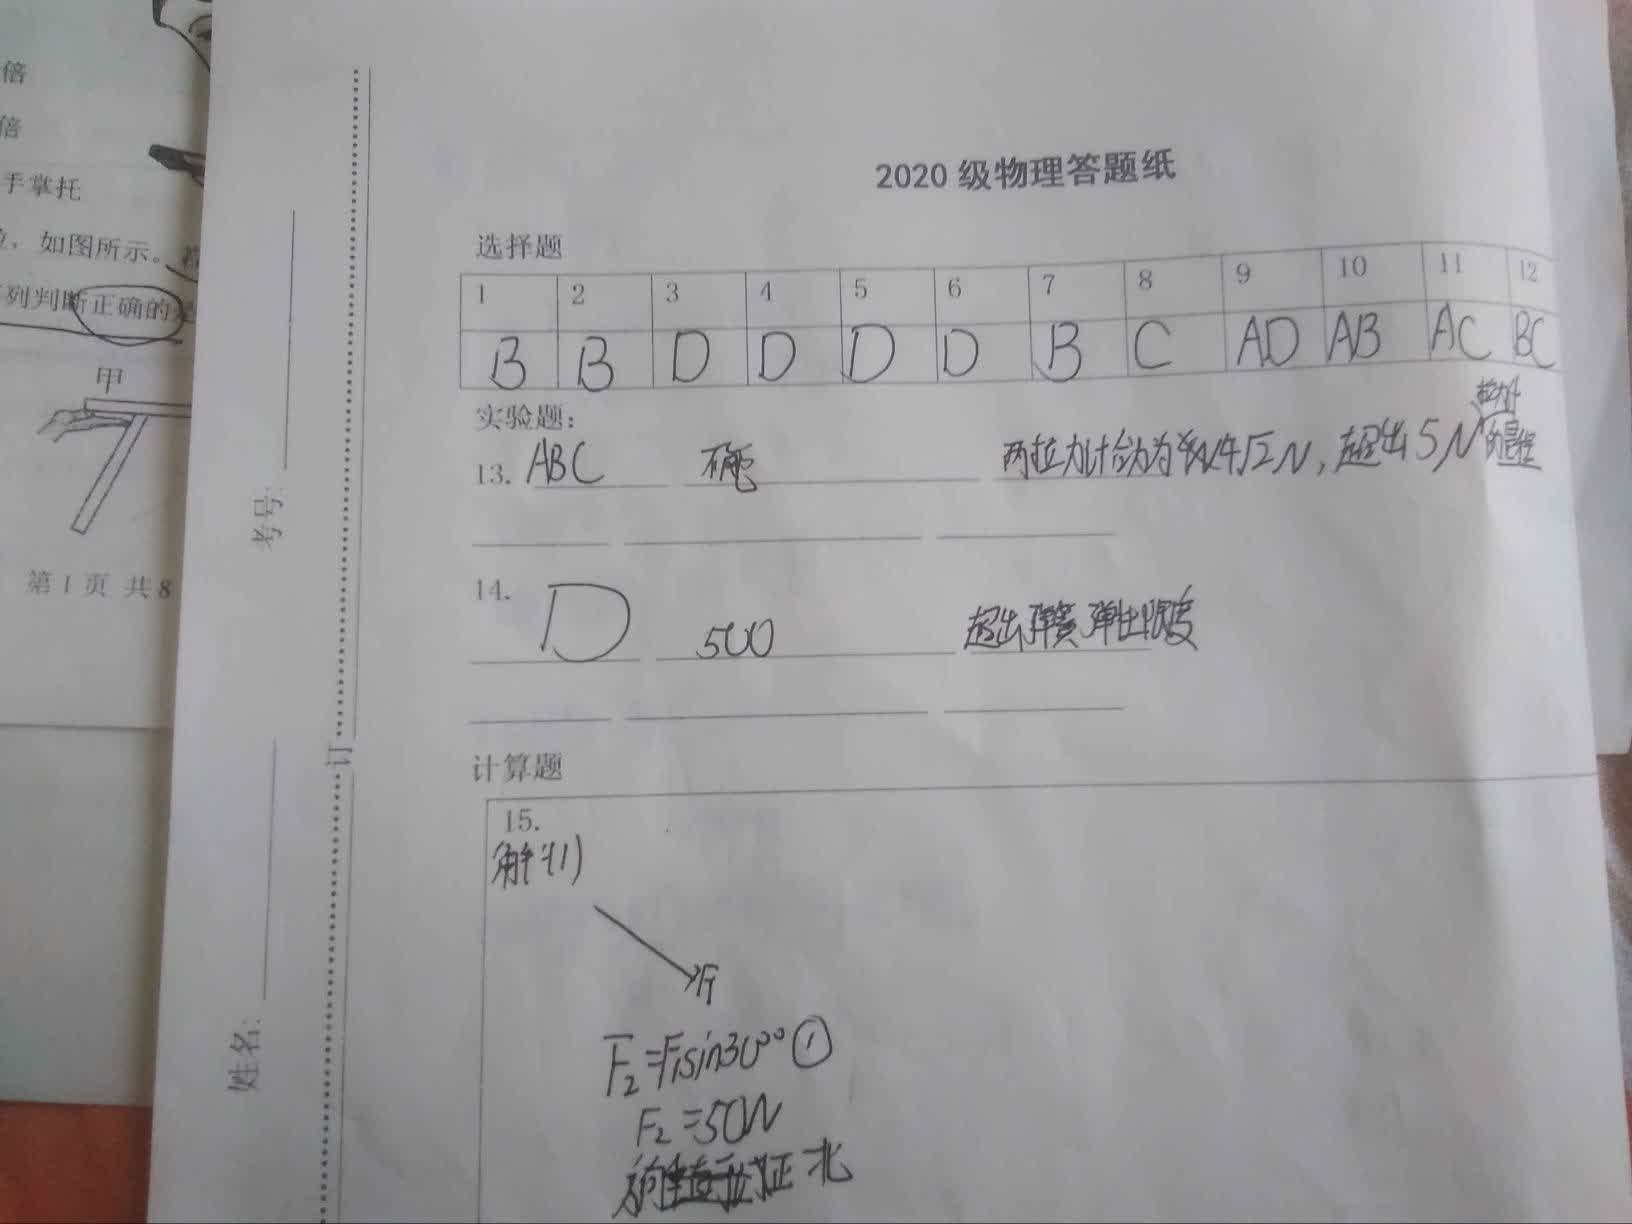 倍
倍
手掌托
位，如图所示。
下列判断正确的是
甲
第 1 页 共 8
考号：
姓名：
订
2020 级物理答题纸
选择题
1 2 3 4 5 6 7 8 9 10 11 12
B B D D D D B C AD AB AC BC
实验题：
拉力计
13. ABC 不能 两拉力计合力为4√2N，超出5N的量程
14. D 500 超出弹簧弹性限度
计算题
15.
解(1)
F₁
F₂=F₁sin30° ①
F₂=50N
方向 正北